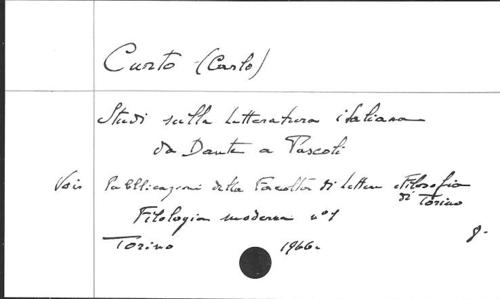 Curto (Carlo)
Studi sulla letteratura italiana
da Dante a Pascoli
Vois Pubblicazioni della Facoltà di Lettere e Filosofia
di Torino
Filologia moderna n°1
Torino 1966
8.